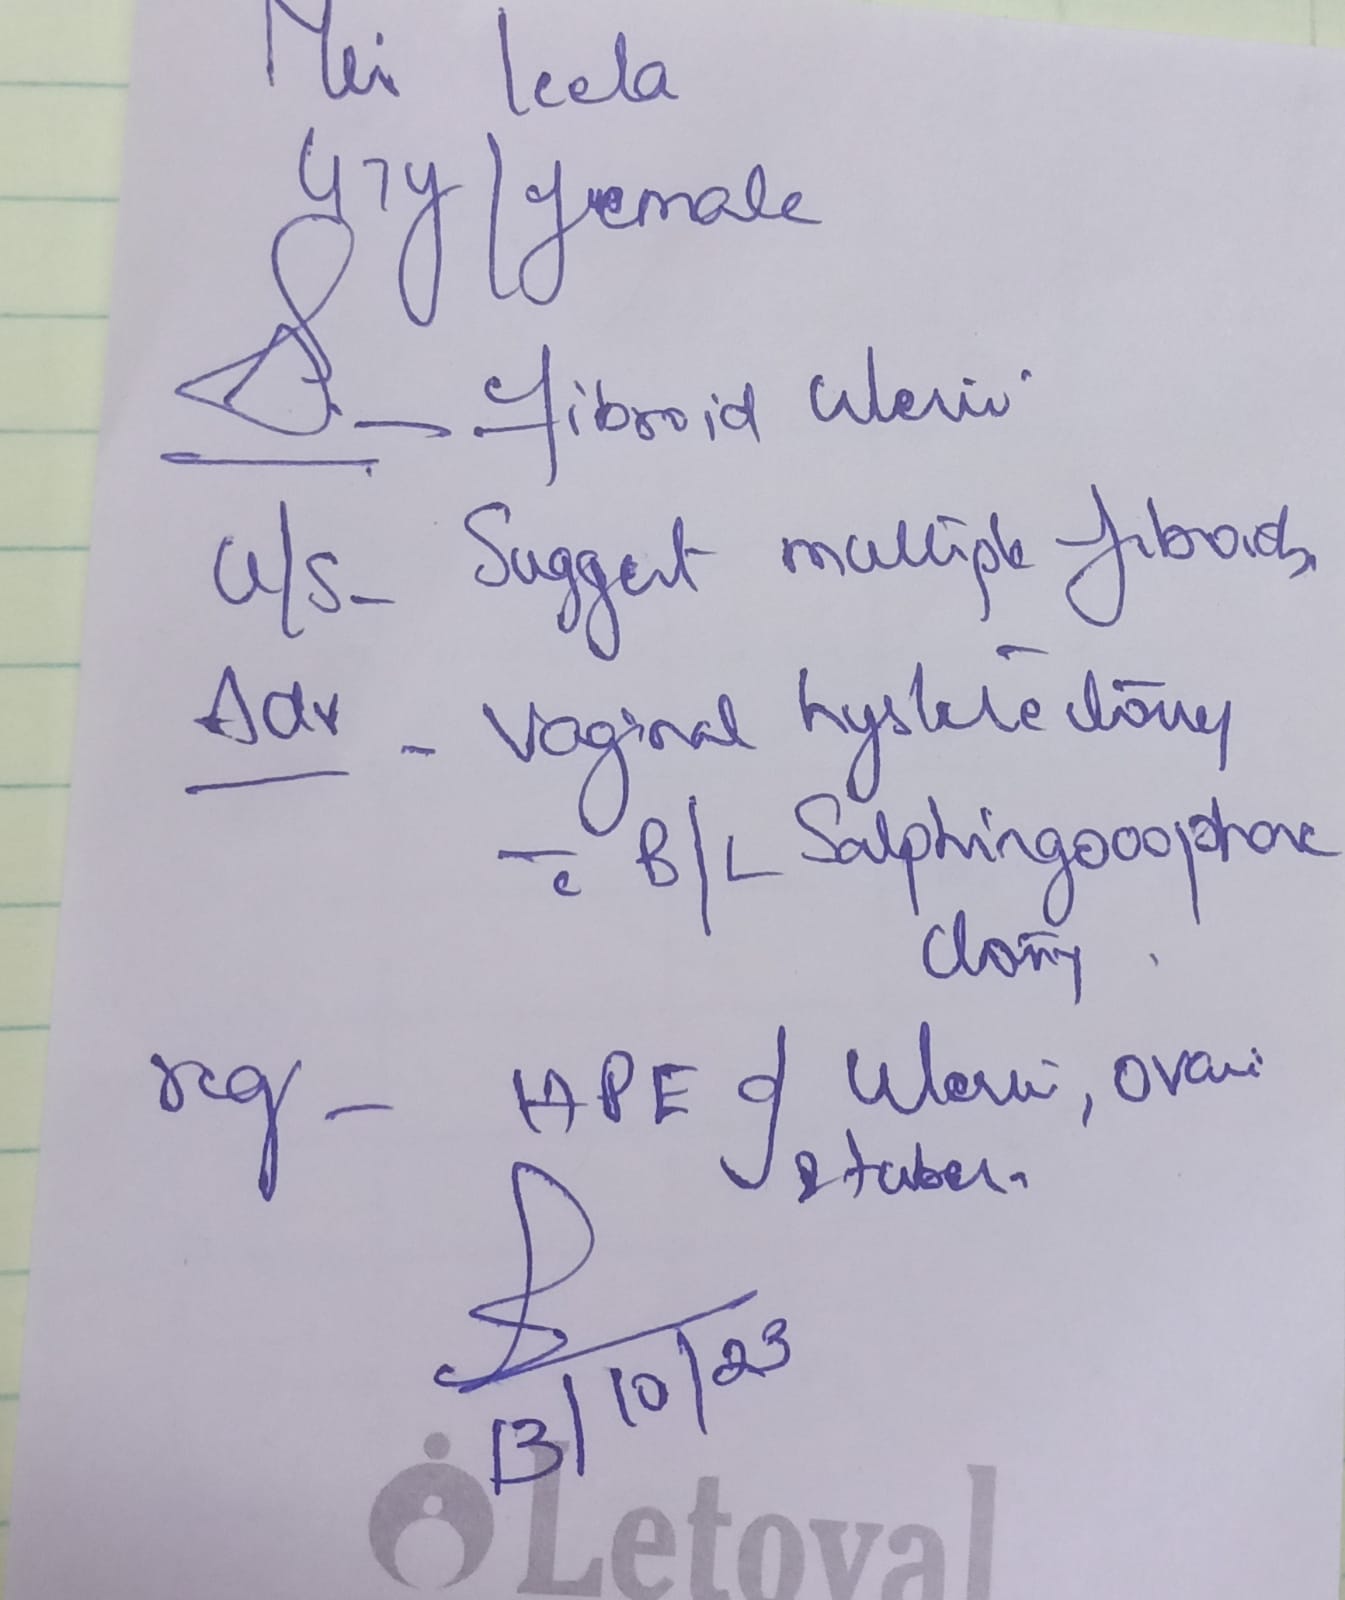 Mrs Leela
47y/female
Δ - Fibroid uterus
U/S - Suggest multiple fibroids
Adv - Vaginal hysterectomy
c̄ B/L Salphingooophore
ctomy.
Req - HPE of Uterus, ovari
& tubes.
13/10/23
Letoval